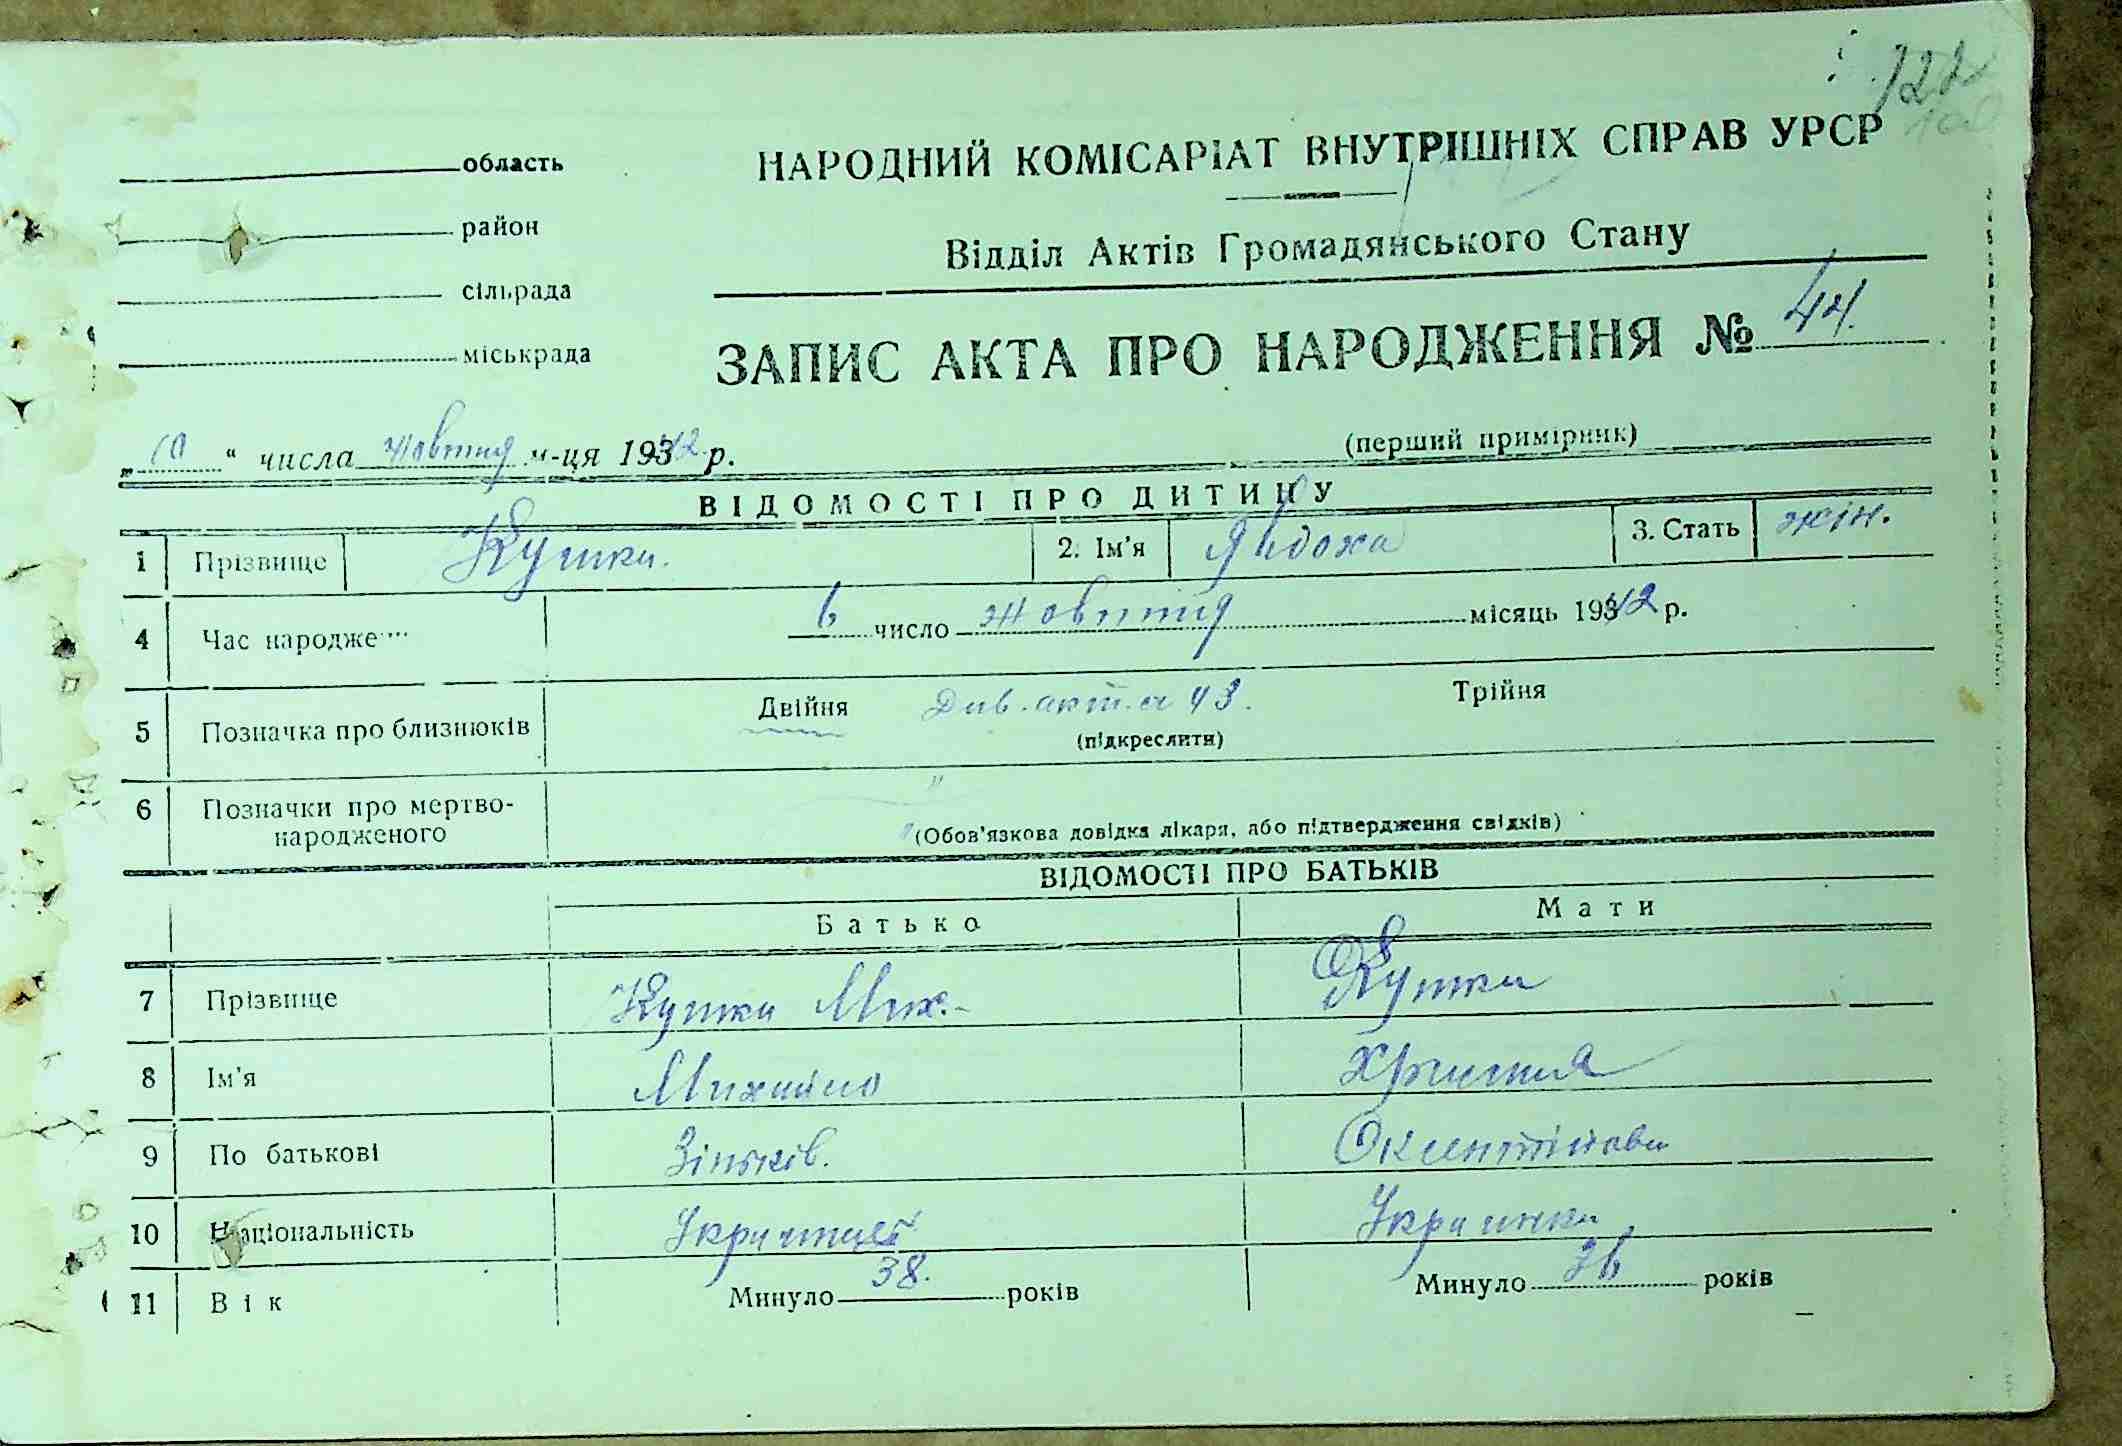 122
область
НАРОДНИЙ КОМІСАРІАТ ВНУТРІШНІХ СПРАВ УРСР
район
Відділ Актів Громадянського Стану
сільрада
міськрада
ЗАПИС АКТА ПРО НАРОДЖЕННЯ № 44.
(перший примірник)
„10“ числа жовтня м-ця 1942 р.
ВІДОМОСТІ ПРО ДИТИНУ
1 Прізвище Кушка. 2. Ім'я Явдоха 3. Стать жін.
4 Час народже 6 число жовтня місяць 1942 р.
5 Позначка про близнюків Двійня Див. акт. 43. Трійня
(підкреслити)
6 Позначки про мертво-
народженого
(Обов'язкова довідка лікаря, або підтвердження свідків)
ВІДОМОСТІ ПРО БАТЬКІВ
Батько Мати
7 Прізвище Кушка Мих. Кушка
8 Ім'я Михайло Христия
9 По батькові Зіньків.
10 Національність Українець Українка
11 Вік Минуло 38. років Минуло 36 років